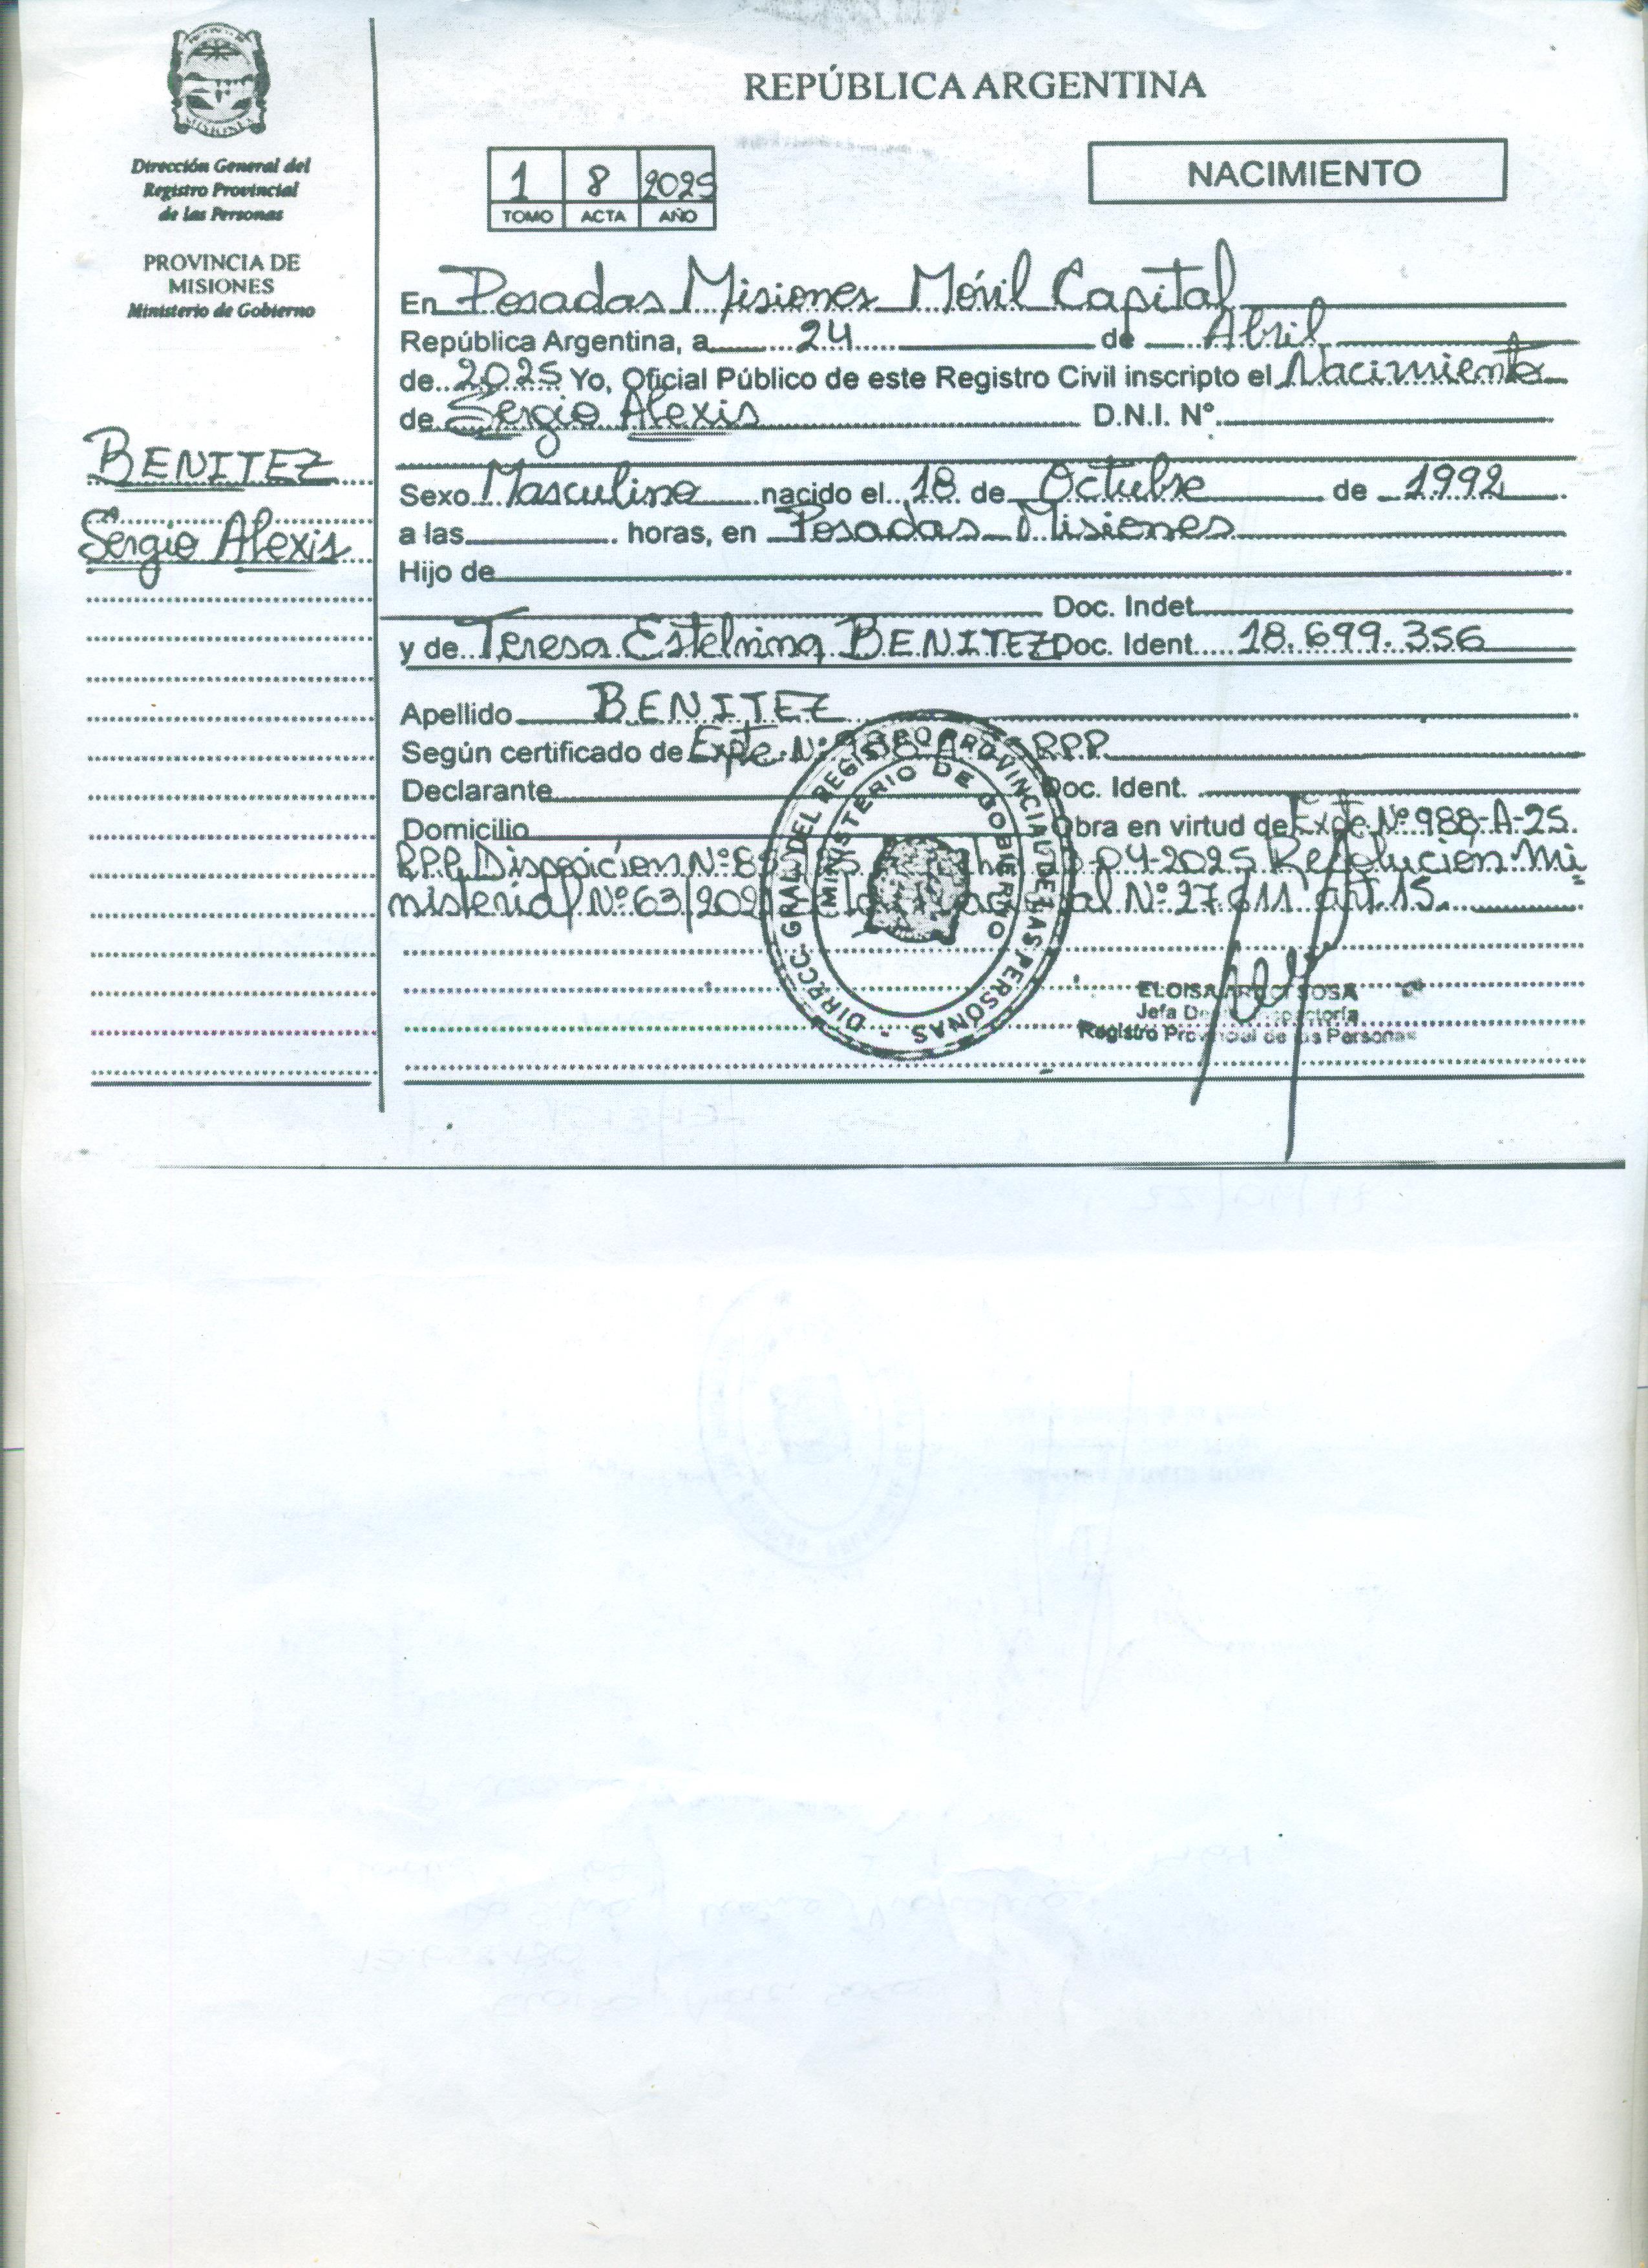 MISIONES
Dirección General del
Registro Provincial
de las Personas
PROVINCIA DE
MISIONES
Ministerio de Gobierno
BENITEZ
Sergio Alexis
REPÚBLICA ARGENTINA
1 8 2025
TOMO ACTA AÑO
NACIMIENTO
En Posadas Misiones Móvil Capital
República Argentina, a 24 de Abril
de 2025 Yo, Oficial Público de este Registro Civil inscripto el Nacimiento
de Sergio Alexis D.N.I. Nº
Sexo Masculino nacido el 18 de Octubre de 1992
a las horas, en Posadas Misiones
Hijo de
Doc. Indet.
y de Teresa Estelnina BENITEZ Doc. Ident. 18.699.356
Apellido BENITEZ
Según certificado de Expte. Nº 988 A RPP.
Declarante Doc. Ident.
Domicilio Obra en virtud de Expte Nº 988-A-25.
RPP. Disposición Nº 04-2025 Resolución Mi
nisterial Nº 63/202 Nº 27.611 art. 15.
DIRECC. GRAL. DEL REGISTRO PROVINCIAL DE LAS PERSONAS
MINISTERIO DE GOBIERNO
ELOISA SOSA
Jefa
Registro Provincial de las Personas